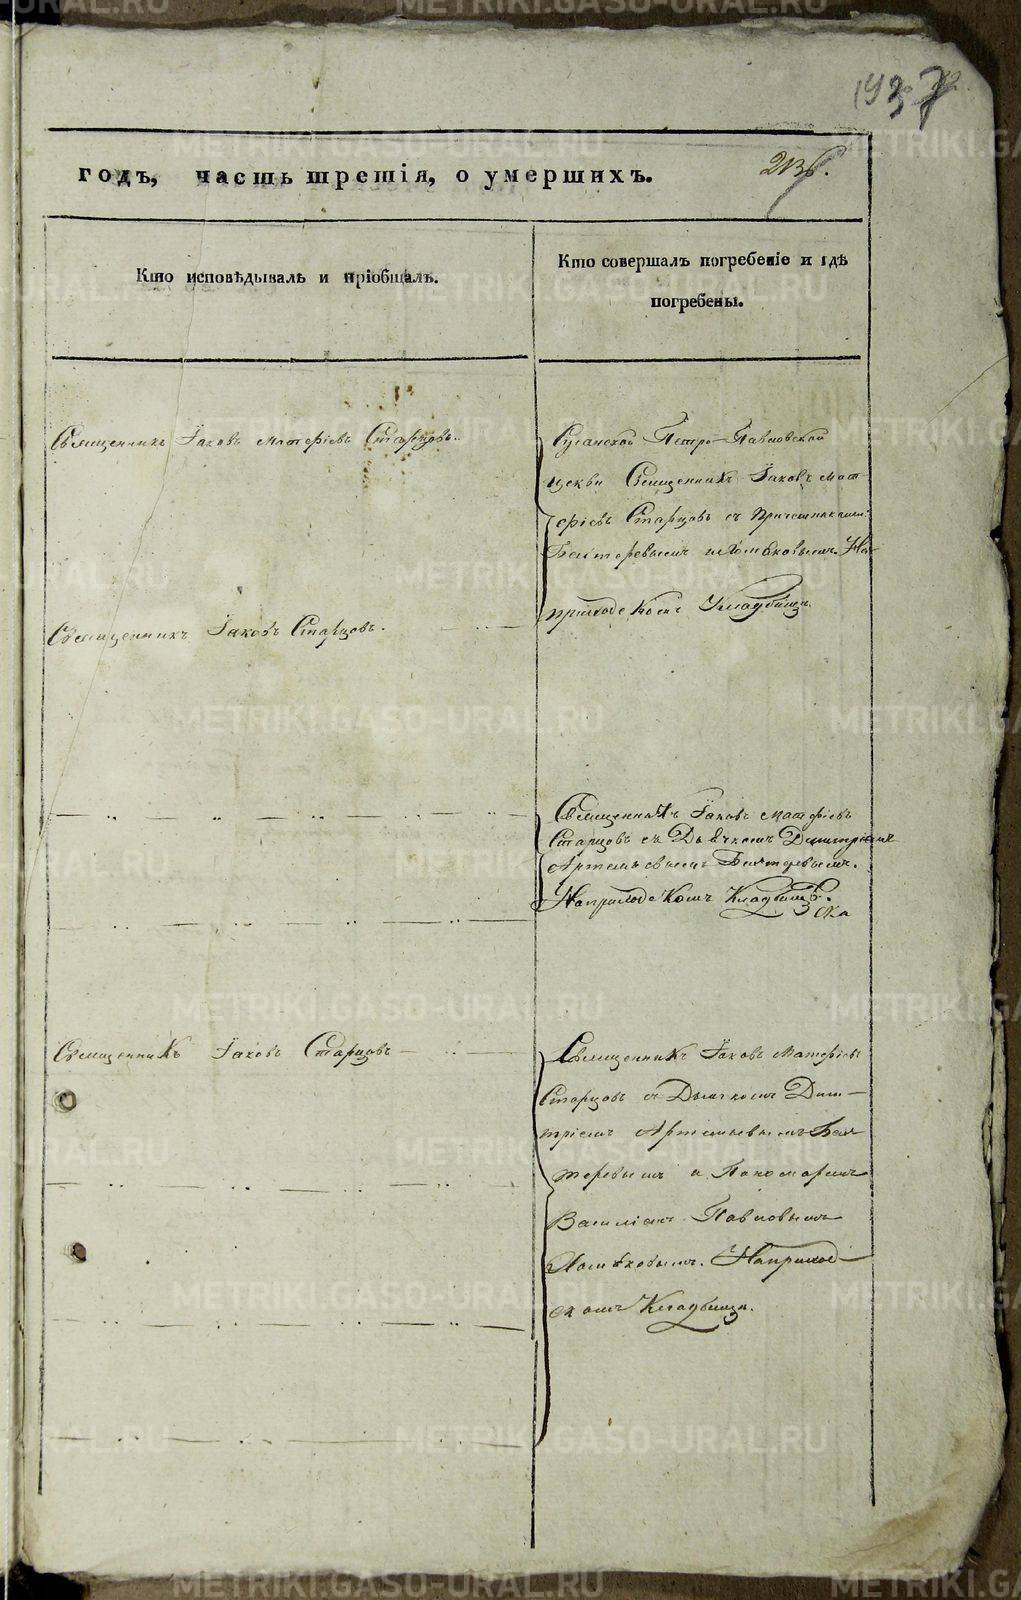 1937
213
годъ, часть третія, о умершихъ.
Кто исповѣдывалъ и пріобщалъ.
Кто совершалъ погребеніе и гдѣ
погребены.
Священникъ Іаковъ Матфіевъ Старцовъ.
Сусанской Петро-Павловской
церкви Священникъ Іаковъ Мат-
фіевъ Старцовъ съ Причетниками:
На
приходскомъ Кладбищѣ.
Священникъ Іаковъ Старцовъ.
Священникъ Іаковъ Матфіевъ
Старцовъ съ Дьячкомъ Димитріемъ
Артемьевымъ Бахтеревымъ.
На приходскомъ Кладбищѣ.
Священникъ Іаковъ Старцовъ
Священникъ Іаковъ Матфіевъ
Старцовъ съ Дьячкомъ Дим-
тріемъ Артемьевымъ Бах-
теревымъ и Пономаремъ
Василіемъ Павловымъ
На приход-
скомъ Кладбищѣ.
METRIKI.GASO-URAL.RU